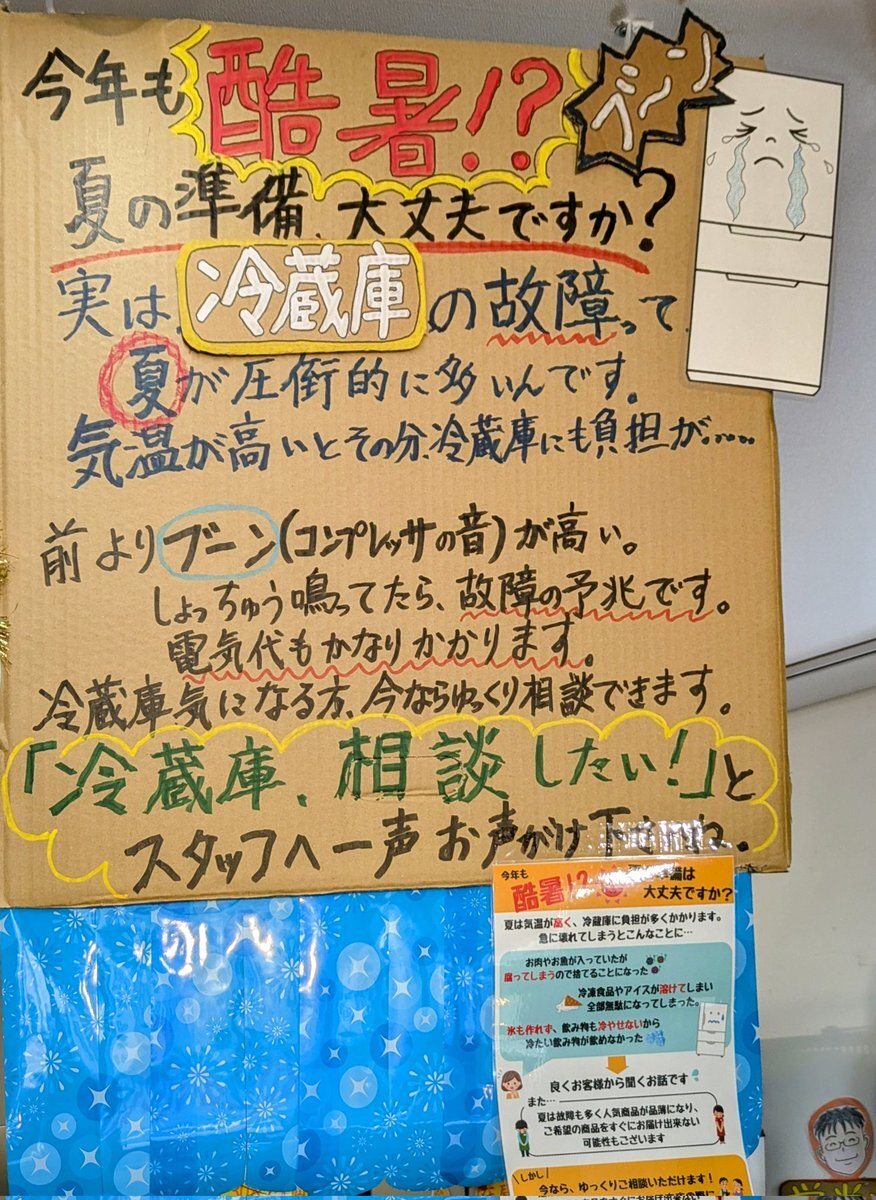 今年も酷暑!?
ブーン
夏の準備、大丈夫ですか?
実は、冷蔵庫の故障って、
夏が圧衝的に多いんです。
気温が高いとその分、冷蔵庫にも負担が……
前よりブーン(コンプレッサの音)が高い。
しょっちゅう鳴ってたら、故障の予兆です。
電気代もかなりかかります。
冷蔵庫気になる方、今ならゆっくり相談できます。
「冷蔵庫、相談したい!」と
スタッフへ一声お声がけ下さいね。
今年も酷暑!?
準備は
大丈夫ですか?
夏は気温が高く、冷蔵庫に負担が多くかかります。
急に壊れてしまうとこんなことに…
お肉やお魚が入っていたが
腐ってしまうので捨てることになった
冷凍食品やアイスが溶けてしまい
全部無駄になってしまった。
氷も作れず、飲み物も冷やせないから
冷たい飲み物が飲めなかった
良くお客様から聞くお話です
また…
夏は故障も多く人気商品が品薄になり、
ご希望の商品をすぐにお届け出来ない
可能性もございます
しかし
今なら、ゆっくりご相談いただけます!